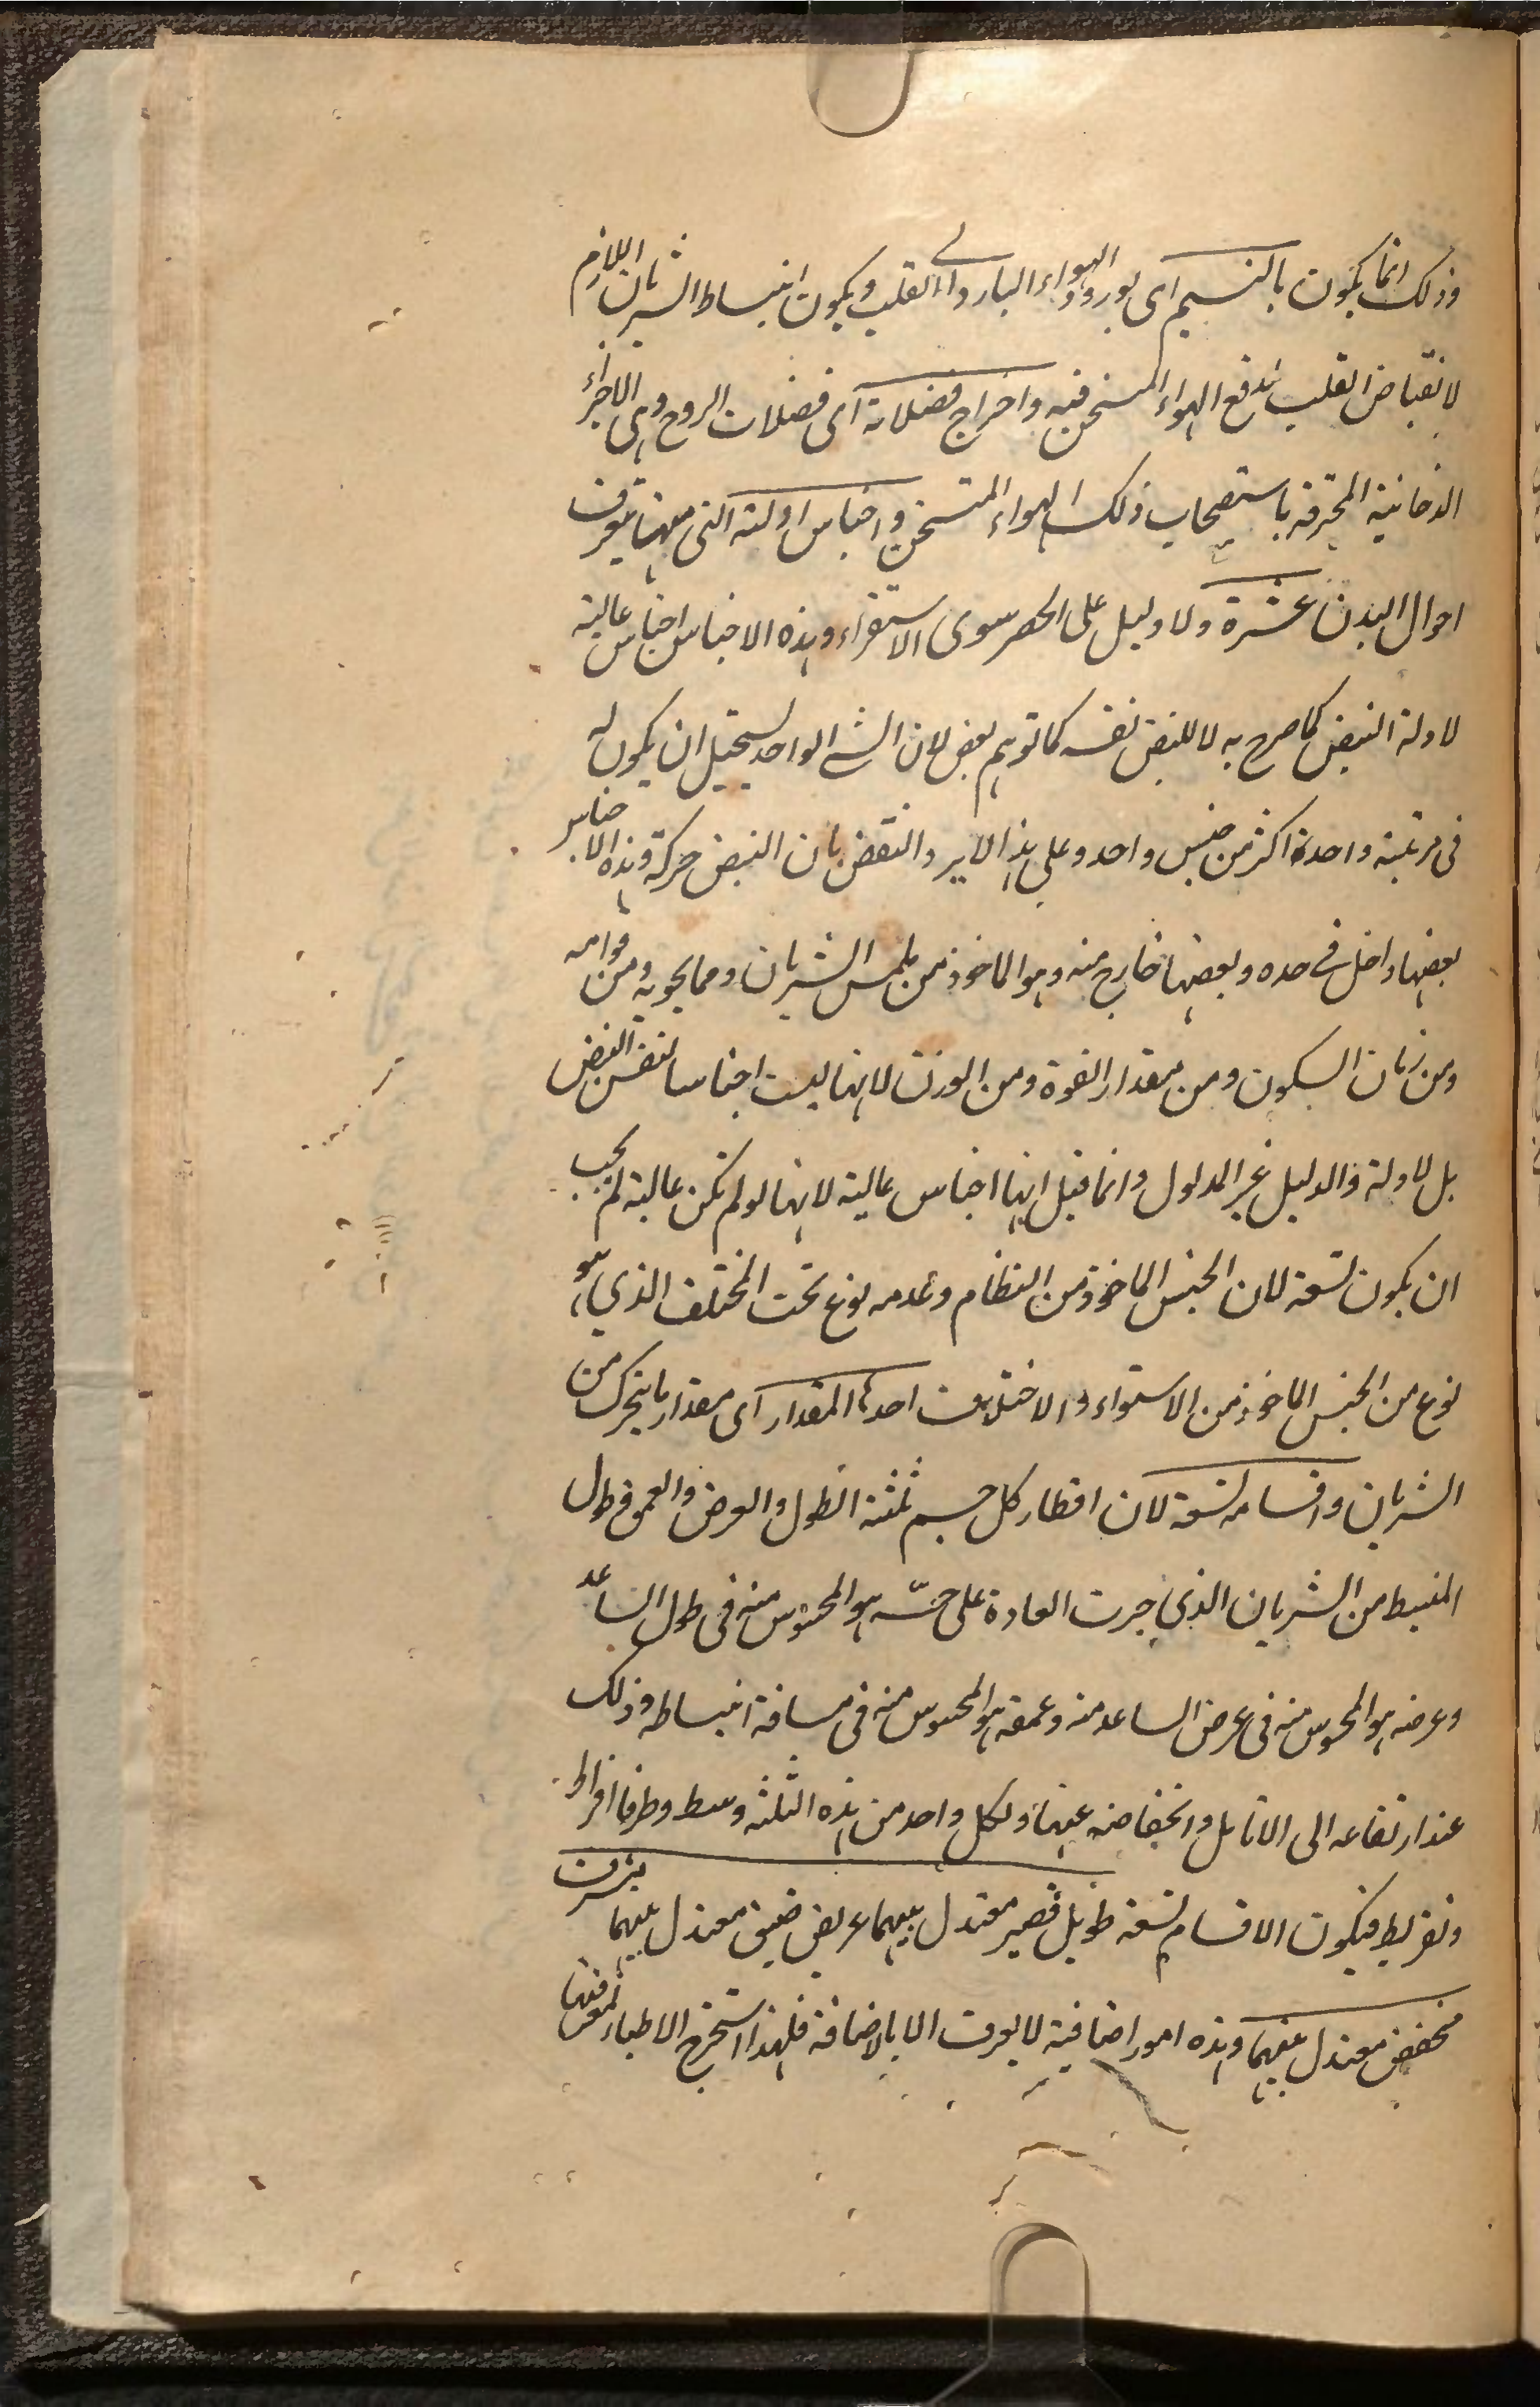 وذلك انما يكون بالنسيم اى بورود الهواء البارد الى القلب ويكون انبساط الشريان اللازم
لانقباض القلب لدفع الهواء المتسخن فيه واخراج فضلاته اى فضلات الروح وهى الاجزاء
الدخانية المحترقة باستصحاب ذلك الهواء المتسخن واجناس ادلته التى منها تتعرف
احوال البدن عشرة ولا دليل على الحصر سوى الاستقراء وهذه الاجناس اجناس عالية
لادلة النبض كما صرح به لا للنبض نفسه كما توهم بعض لان الشئ الواحد يستحيل ان يكون له
فى مرتبة واحدة اكثر من جنس واحد وعلى هذا لا يرد النقض بان النبض حركة وهذه الاجناس
بعضها داخل فى حده وبعضها خارج منه وهو الماخوذ من ملمس الشريان ومما يحويه ومن قوامه
ومن زمان السكون ومن مقدار القوة ومن الوزن لانها ليست اجناسا لنفس النبض
بل لادلة والدليل غير المدلول وانما قيل انها اجناس عالية لانها لو لم تكن عالية لم يجب
ان يكون تسعة لان الجنس الماخوذ من النظام وعدمه نوع تحت المختلف الذى هو
نوع من الجنس الماخوذ من الاستواء والاختلاف احدها المقدار اى مقدار ما يتحرك من
الشريان واقسامه تسعة لان اقطار كل جسم ثلثة الطول والعرض والعمق فطول
المنبسط من الشريان الذى جرت العادة على جسه هو المحسوس منه فى طول الساعد
وعرضه هو المحسوس منه فى عرض الساعد منه وعمقه هو المحسوس منه فى مسافة انبساطه وذلك
عند ارتفاعه الى الانامل وانخفاضه عنها ولكل واحد من هذه الثلثة وسط وطرفا افراط
وتفريط فيكون الاقسام تسعة طويل قصير معتدل بينهما عريض ضيق معتدل بينهما مشرف
منخفض معتدل بينهما وهذه امور اضافية لا يعرف الا بالاضافة فلهذا استخرج الاطباء لمعرفتها